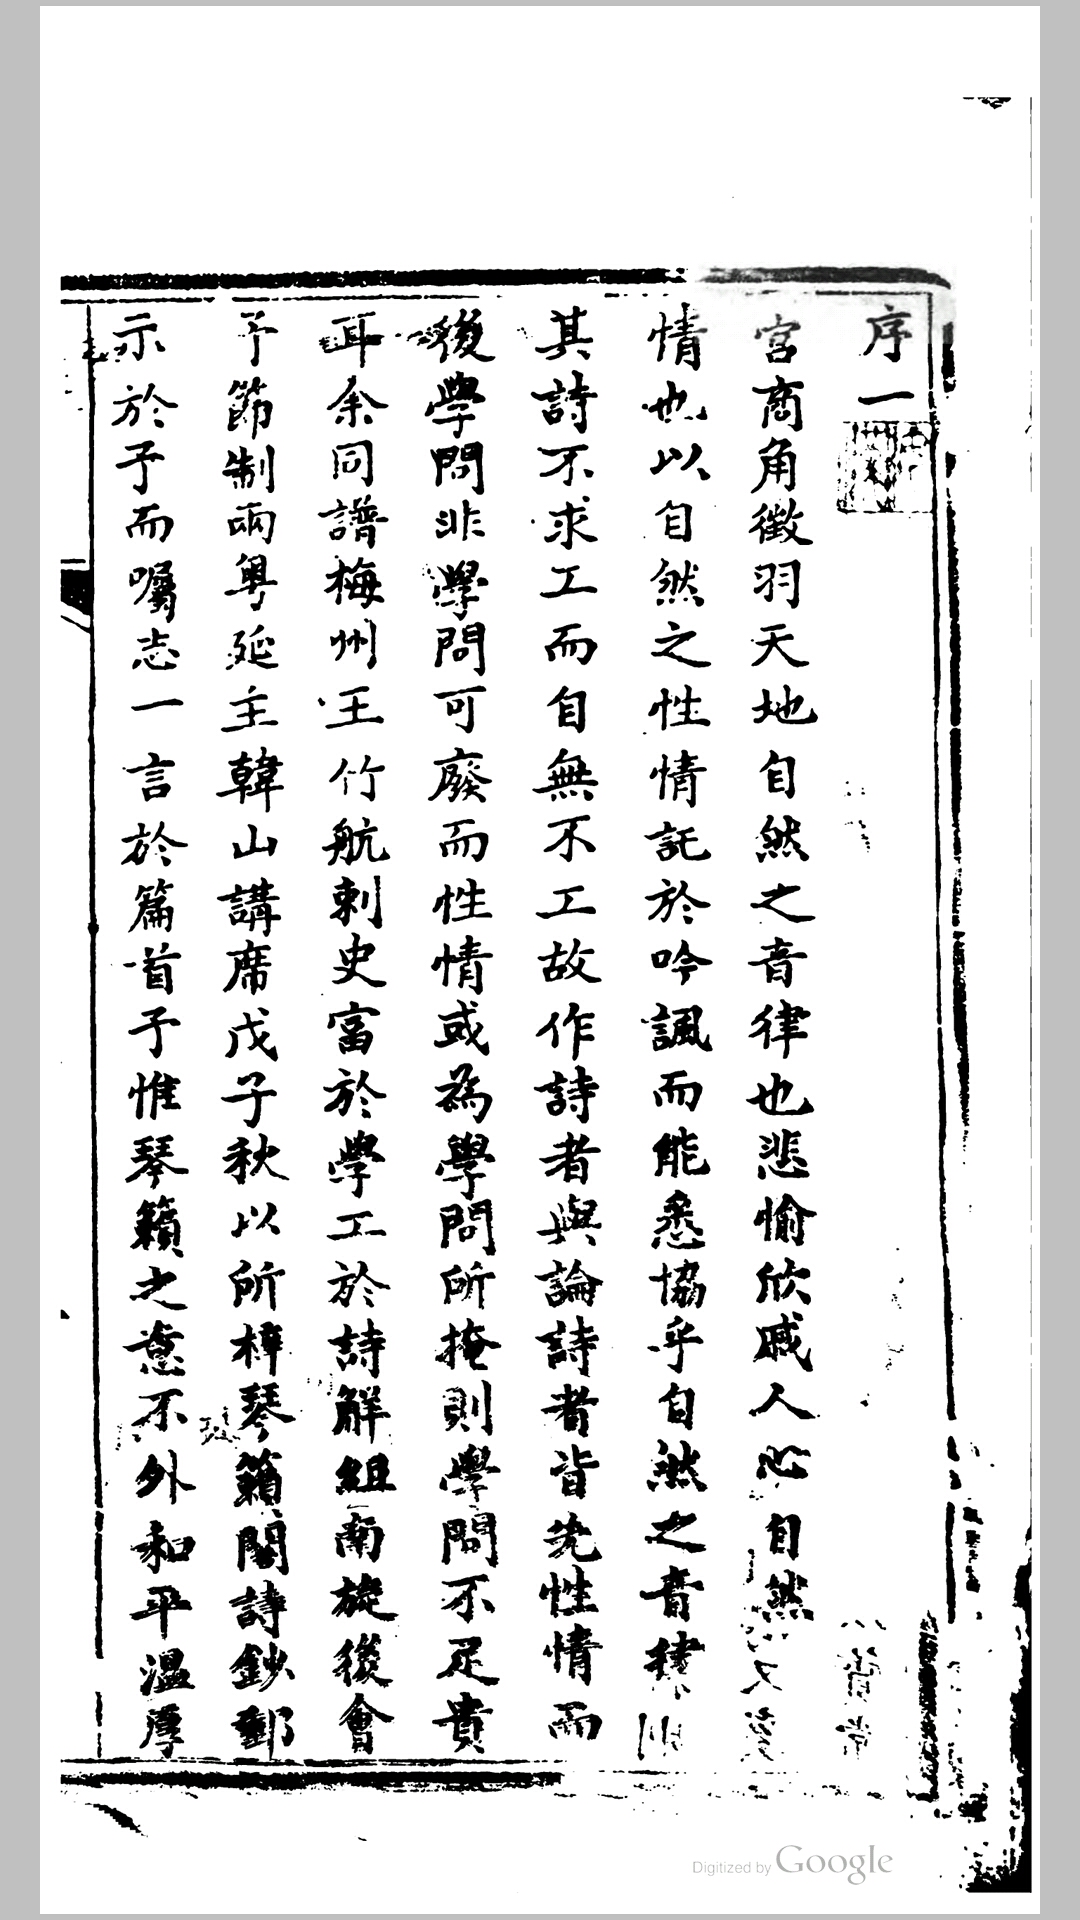 序一
宮商角徵羽天地自然之音律也悲愉欣戚人心自然之
情也以自然之性情託於吟諷而能悉協乎自然之音律則
其詩不求工而自無不工故作詩者與論詩者皆先性情而
後學問非學問可廢而性情或為學問所掩則學問不足貴
耳余同譜梅州王竹航刺史富於學工於詩解組南旋後會
予節制兩粵延主韓山講席戊子秋以所梓琴籟閣詩鈔郵
示於予而囑志一言於篇首予惟琴籟之意不外和平溫厚
Digitized by Google